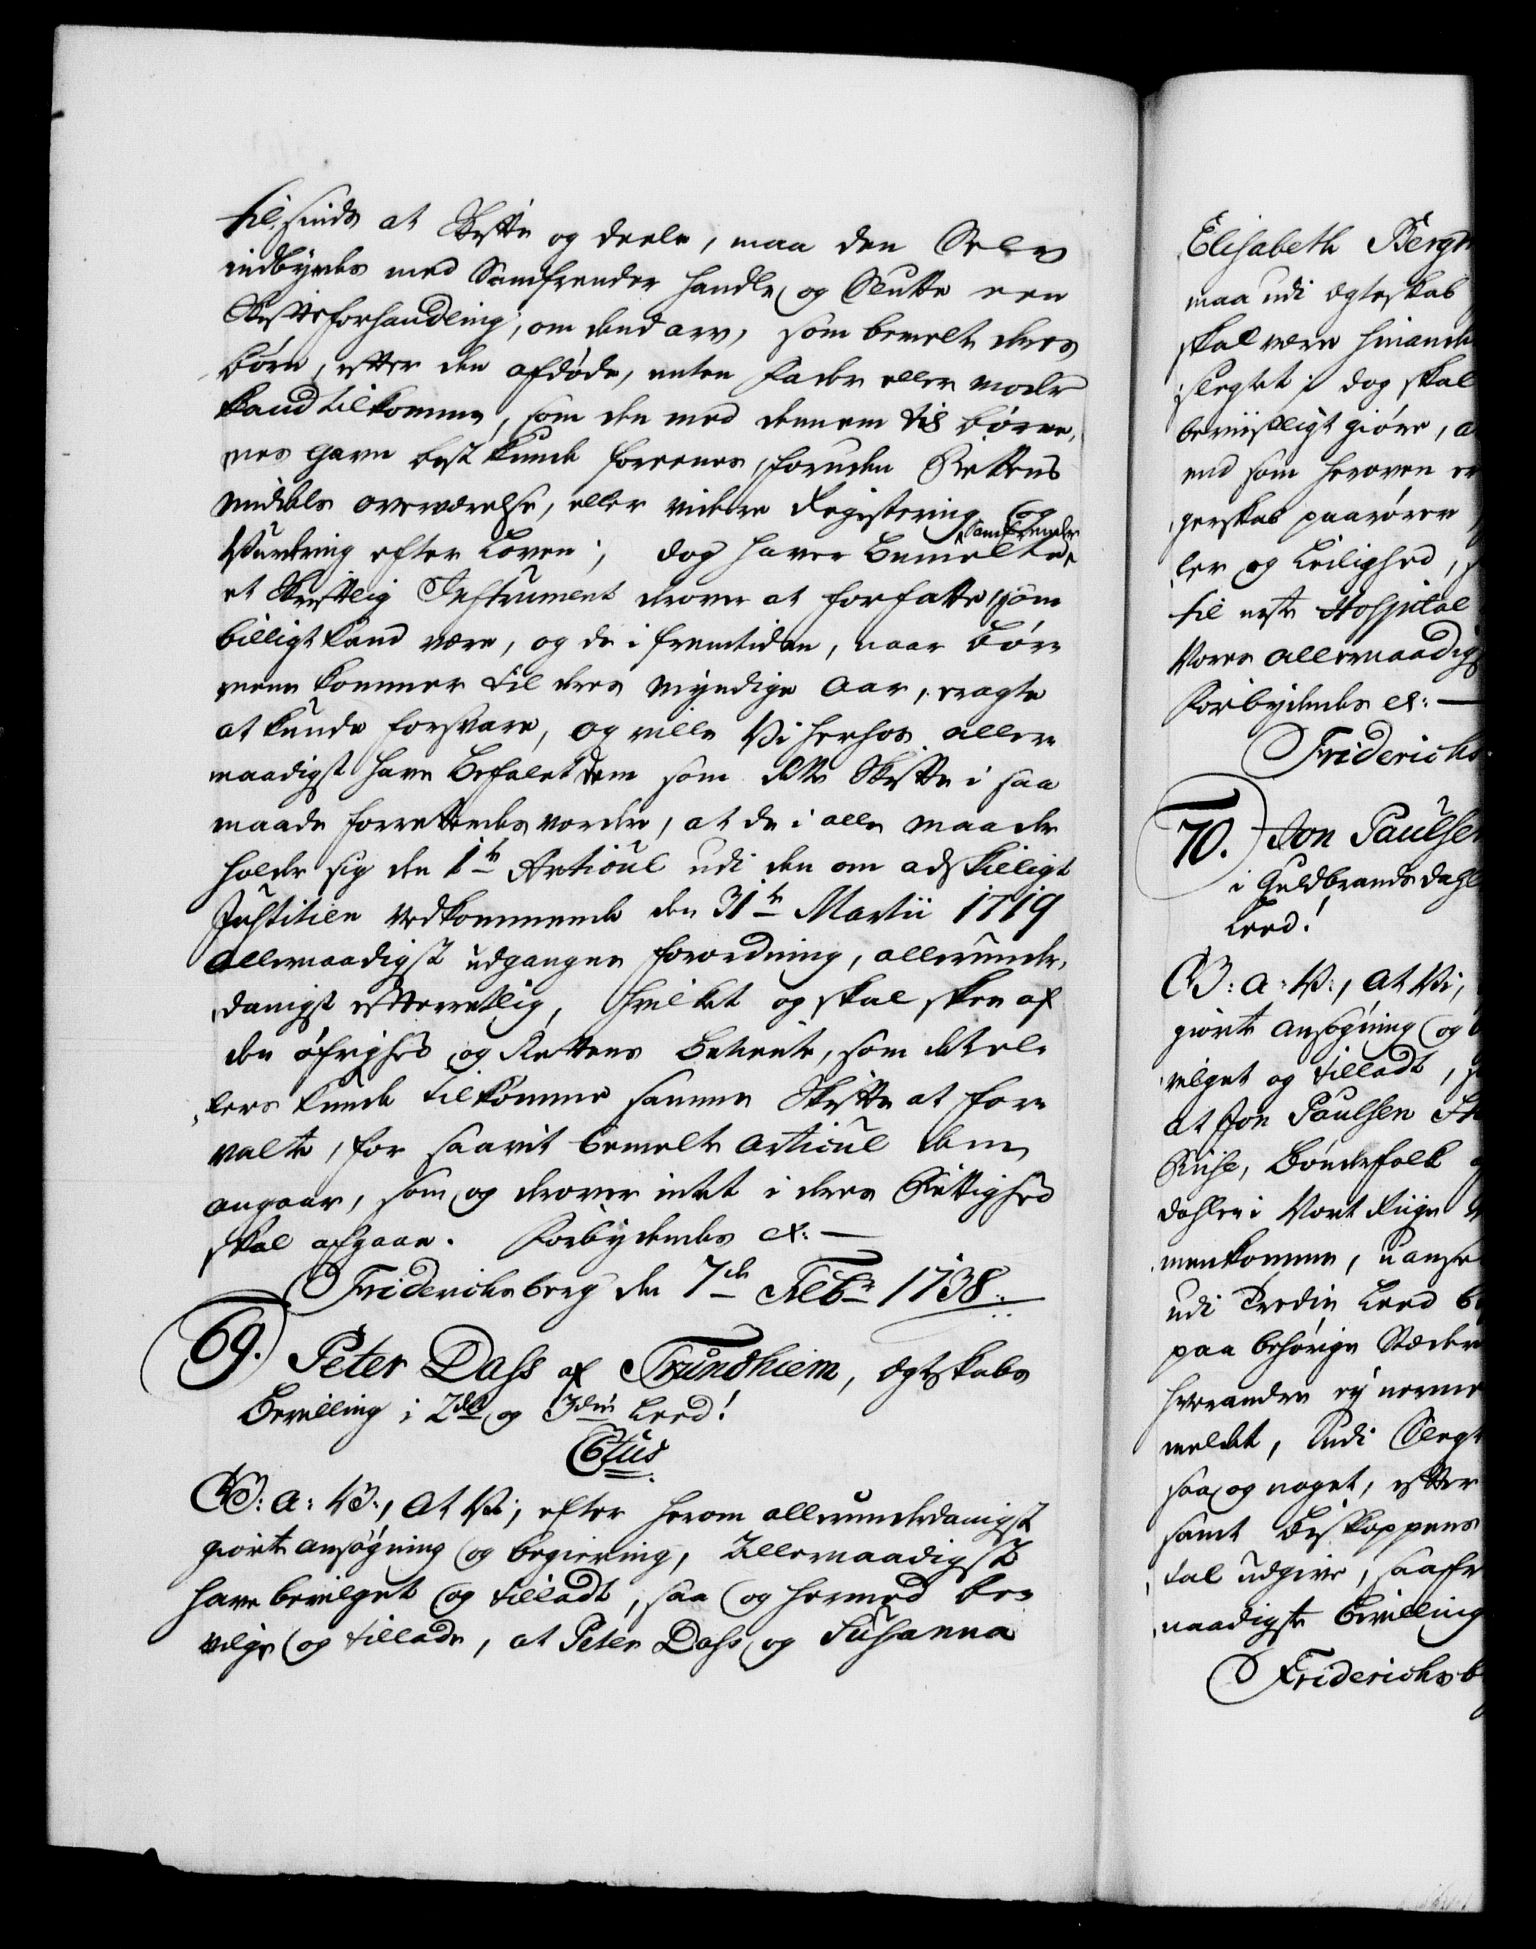 til sinds at skifte og deele, maa den Selv
indbyrdes med Samfrender handle og Slutte een
Skifteforhandling, om dend arv, som bemelte deres
børn, efter den afdøde, enten Fader eller moder
kand tilkomme, som den med dennem til børne,
nes gavn best kunde foreenes, foruden Rettens
middels overværelse, eller videre Registering og
Vurdering efter Loven; dog haver bemelte Samfrender
et skriftlig Instrument derover at forfatte, som
billigt kand være, og de i fremtiden, naar bør-
nene kommer til deres myndige aar, eragte
at kunde forsvare, og ville Vi herhos aller-
naadigst have befalet dem som dette Skifte i saa
maade forrettendes vorder, at de i alle maader
holder sig den 1te Articul udi den om adskilligt
Justitien vedkommende den 31te Martii 1719
allernaadigst udgangne forordning, allerunder,
danigst efterrettlig, hvilket og skal skee af
den øfrighed og Rettens betiente, som det el-
lers kunde tilkomme samme Skifte at for-
valte, for saavit bemelte articul dem
angaar, som og derover intet i deres Rettighed
skal afgaae. Forbydendes &: —
Friderichsberg den 7de Febr 1738.
69. Peter Dass af Trundhiem, Egteskabs
bevilling i 2det og 3die Leed!
Ctus
G: a: V:, at Vi, efter herom allerunderdanigst
giorte ansøgning og begiering, Allernaadigst
have bevilget og tilladt, saa og hermed be-
vilge og tillade, at Peter Dass og Susanna
Elisabeth Berg
maa udi Egteskab
skal være hinande
slegtet; dog skal
beviisligt giøre, a
end som heroven er
gerskab paarører
ler og Leilighed, s
til neste Hospital
Vores allernaadig
Forbydendes &: —
Friderichs
70. Jon Paulsen
i Guldbrandsdahl
Leed!
G: a: V:, at Vi,
giorte ansøgning og
vilget og tilladt, s
at Jon Paulsen
Riise, bøndefolk
dahlen i Vort Riige
menkomme, uanse
udi Tredie Leed
paa behørige Stæder
hverandre ey nerme
meldet, udi Slegt
saa og noget, efter
samt biskoppens
tal udgive, saafr
naadigste bevilling
Friderichsb